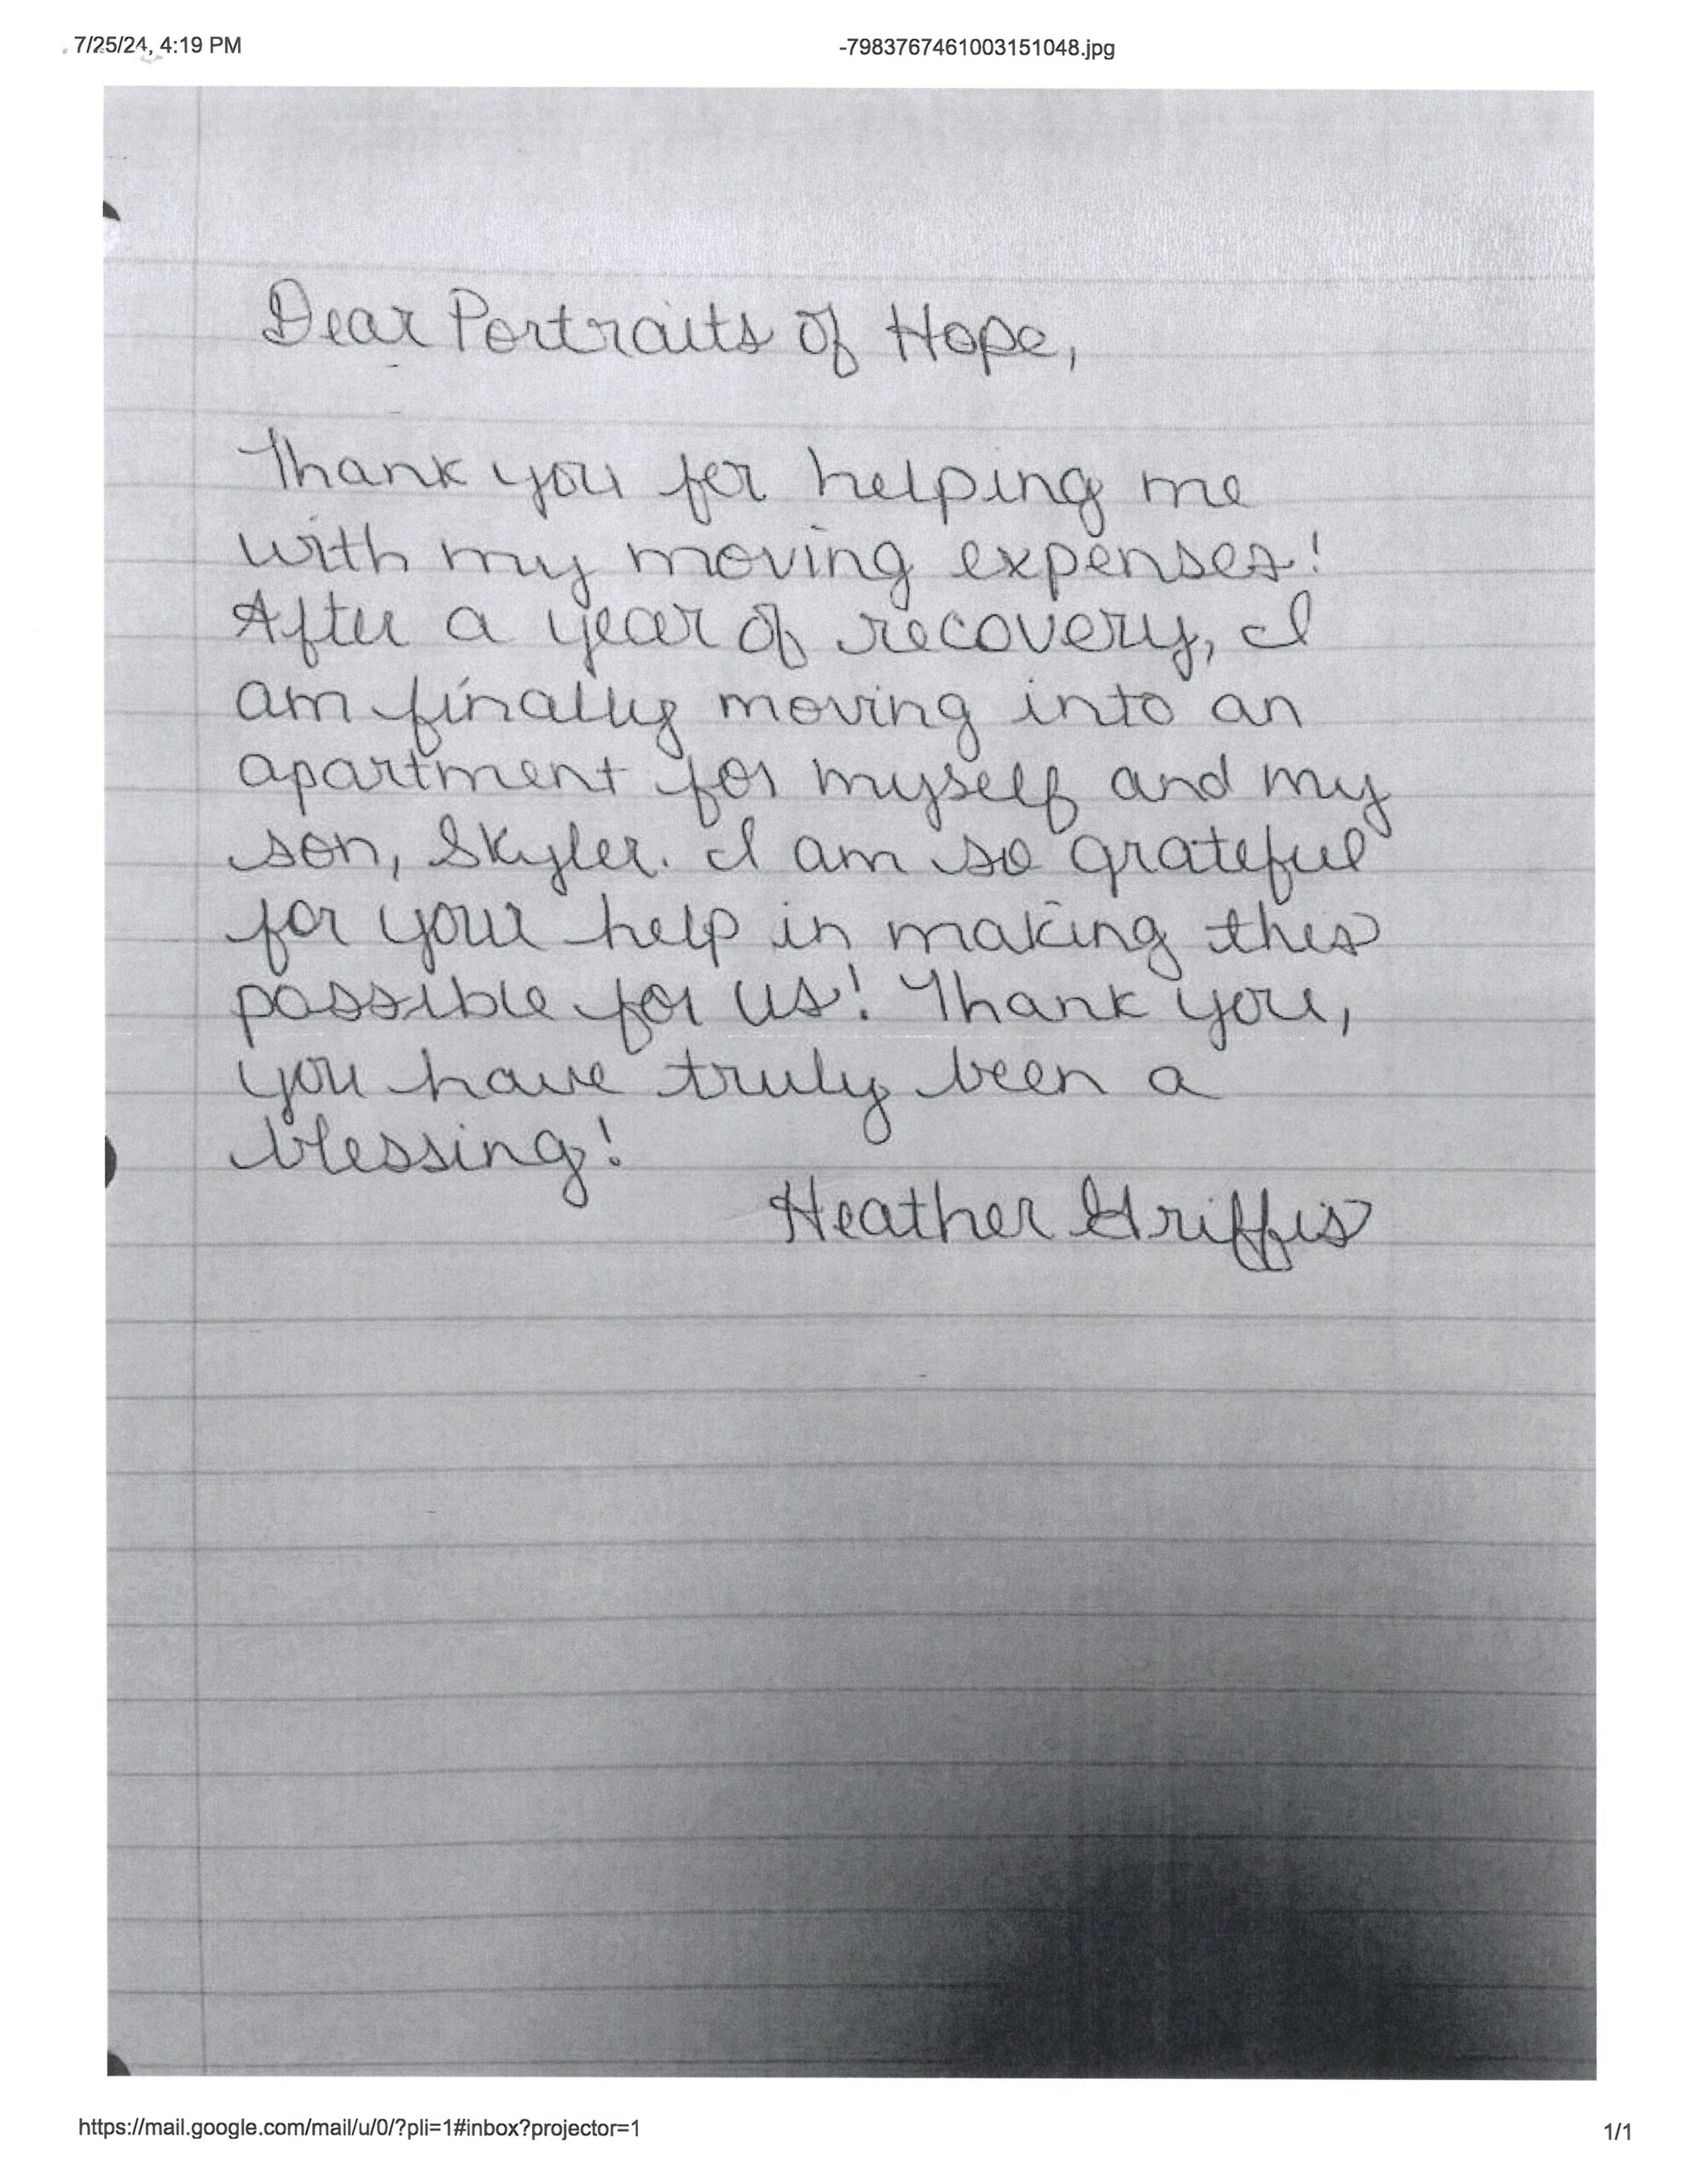 7/25/24, 4:19 PM
-7983767461003151048.jpg
Dear Portraits of Hope,
Thank you for helping me
with my moving expenses!
After a year of recovery, I
am finally moving into an
apartment for myself and my
son, Skyler. I am so grateful
for your help in making this
possible for us! Thank you,
you have truly been a
blessing!
Heather Griffis
https://mail.google.com/mail/u/0/?pli=1#inbox?projector=1
1/1